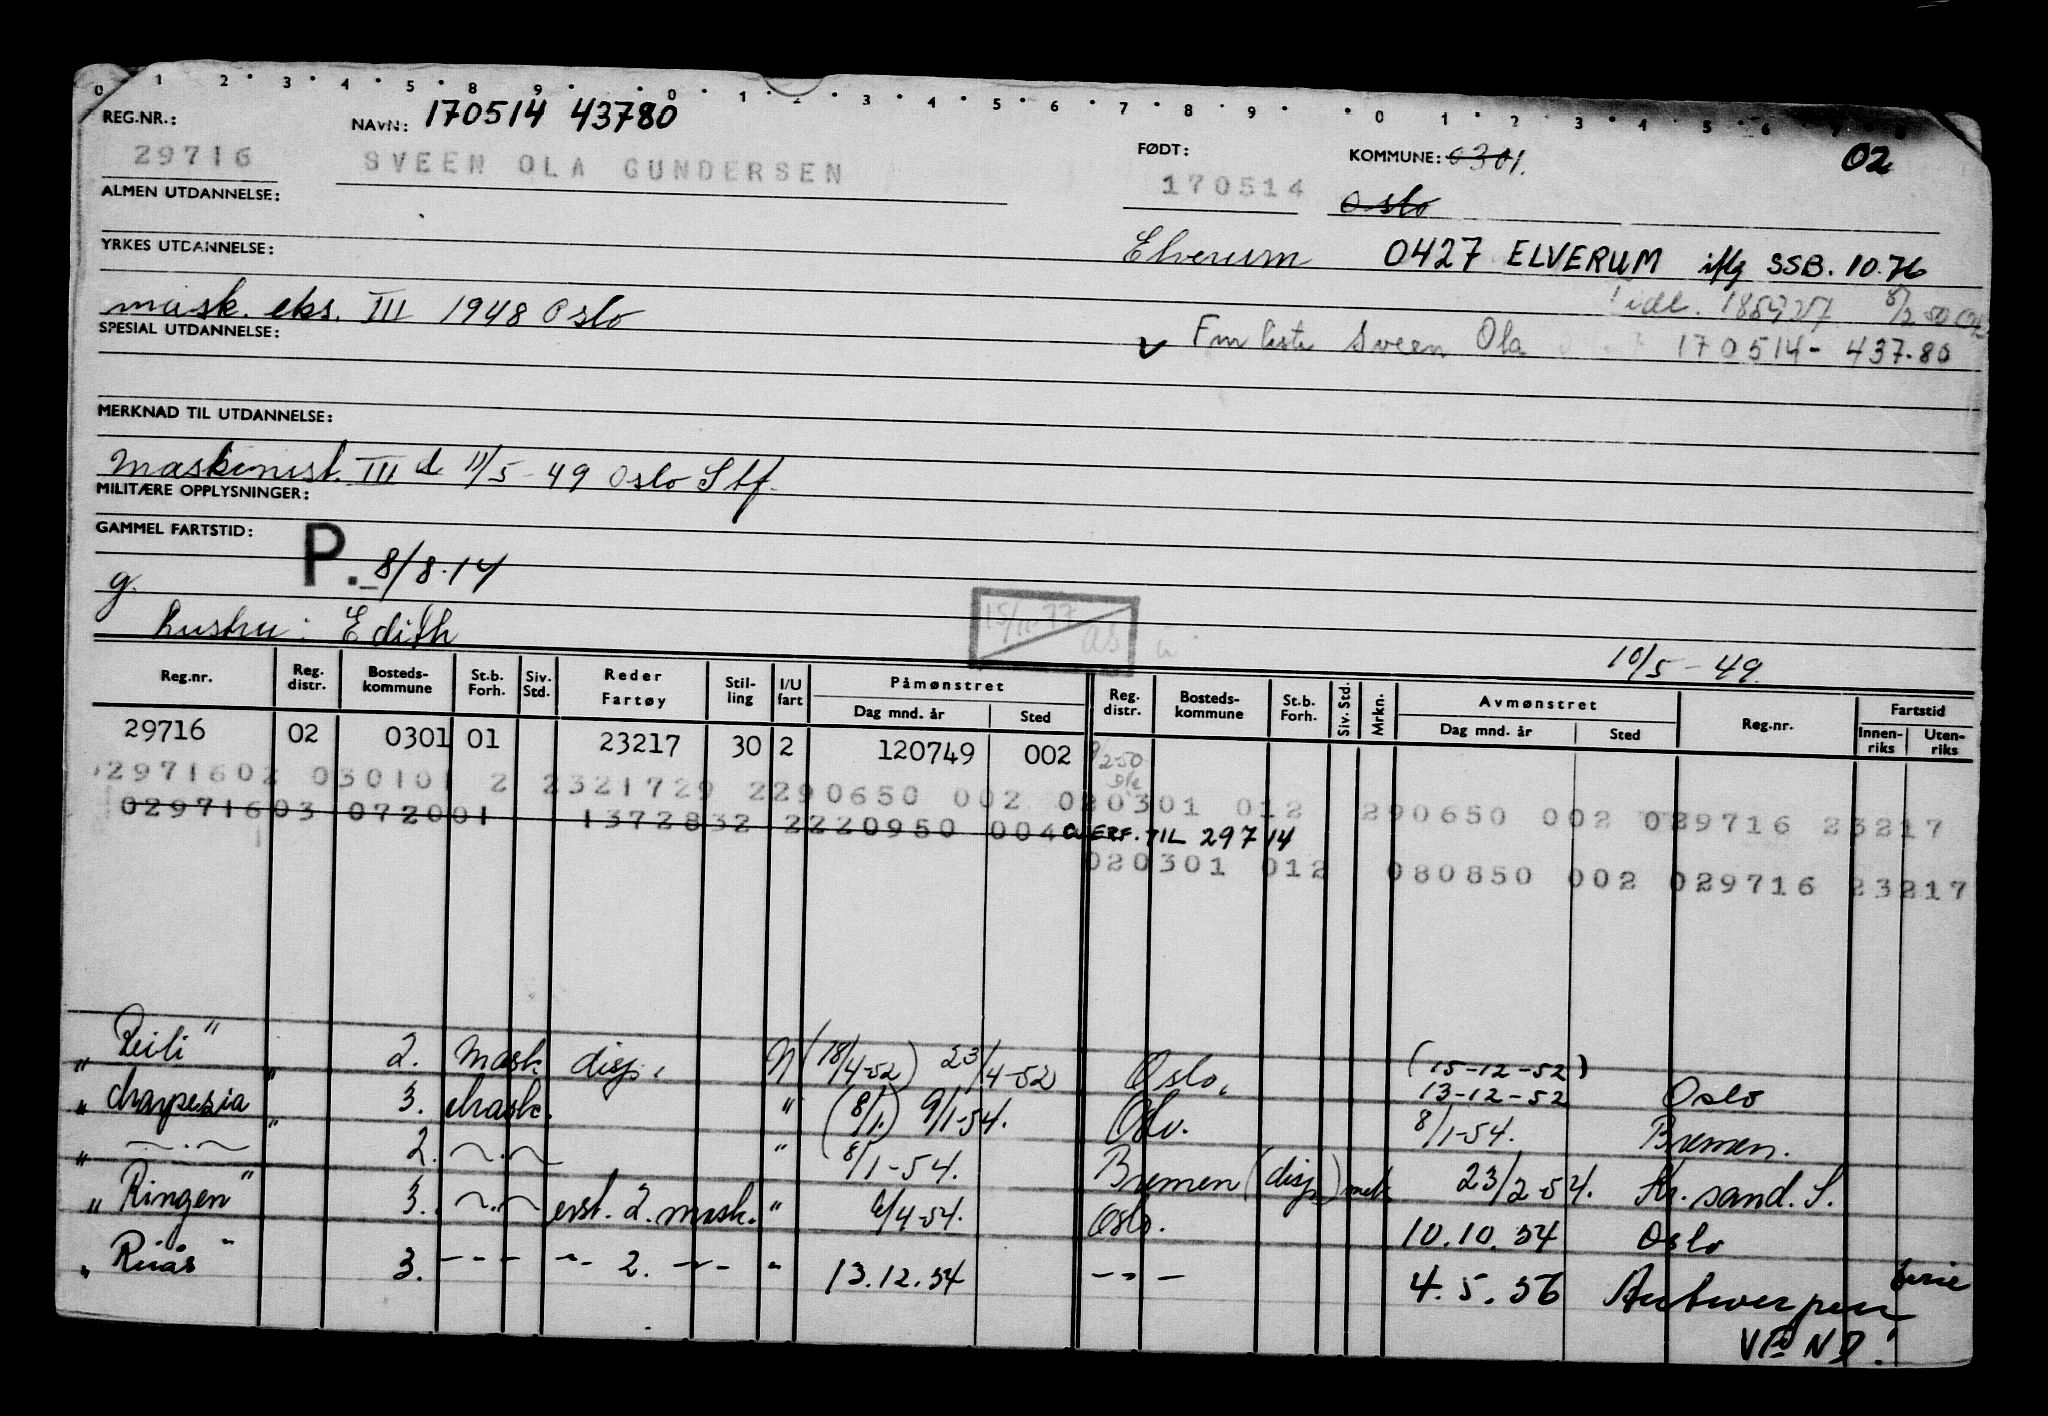 0 1 2 3 4 5 8 9 0 1 2 3 4 5 6 7 8 9 0 1 2 3 4 5 6
REG.NR.: NAVN: 170514 43780 FØDT: KOMMUNE: 0301. 02
29716 SVEEN OLA GUNDERSEN 170514 Oslo
ALMEN UTDANNELSE:
YRKES UTDANNELSE: Elverum 0427 ELVERUM iflg SSB. 10.76
mask. eks. III 1948 Oslo
SPESIAL UTDANNELSE: Sveen Ola 170514 - 437.80
MERKNAD TIL UTDANNELSE:
Maskinist. III d 11/5-49 Oslo Stf.
MILITÆRE OPPLYSNINGER:
GAMMEL FARTSTID: P. 8/8.14
g.
hustru: Edith
15/11-77 as
10/5-49.
Reg.nr. Reg. distr. Bosteds-kommune St.b. Forh. Siv. Std. Reder Fartøy Stil-ling I/U fart Påmønstret Dag mnd. år Sted Reg. distr. Bosteds-kommune St.b. Forh. Siv. Std. Mrkn. Avmønstret Dag mnd. år Sted Reg.nr. Fartstid Innen-riks Uten-riks
29716 02 0301 01 23217 30 2 120749 002
02971602 030101 2 2321729 2290650 002 020301 012 290650 002 029716 23217
02971603 072001 1372832 2220950 004 OVERF. TIL 29714
020301 012 080850 002 029716 23217
2. mask. disp. N (18/4-52) 23/4-52 Oslo. (15-12-52) 13-12-52 Oslo
3. mask. " (8/1.) 9/1-54. 8/1-54. Bremen.
" 2. " 8/1-54. Bremen (disp) 23/2-54. Kr.sand. S.
"Ringen" 3. erst. 2. mask. " 6/4-54. Oslo. 10.10.54 Oslo
3. --- 2. " 13.12.54 --- 4.5.56 Antwerpen ferie
VEND!